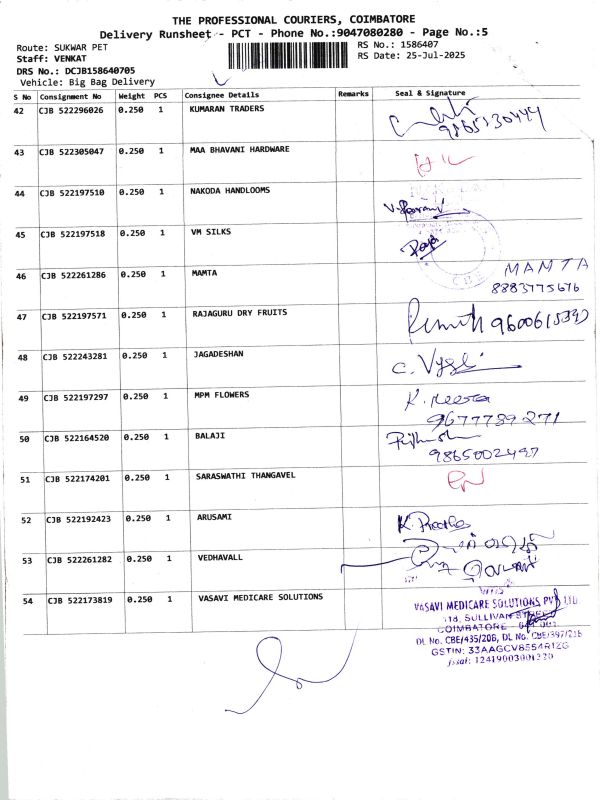 THE PROFESSIONAL COURIERS, COIMBATORE
Delivery Runsheet - PCT - Phone No.:9047080280 - Page No.:5
Route: SUKWAR PET
RS No.: 1586407
Staff: VENKAT
RS Date: 25-Jul-2025
DRS No.: DCJB158640705
Vehicle: Big Bag Delivery
S No Consignment No Weight PCS Consignee Details Remarks Seal & Signature
42 CJB 522296026 0.250 1 KUMARAN TRADERS
43 CJB 522305047 0.250 1 MAA BHAVANI HARDWARE
44 CJB 522197510 0.250 1 NAKODA HANDLOOMS
45 CJB 522197518 0.250 1 VM SILKS
CBE
46 CJB 522261286 0.250 1 MAMTA MAMTA
8883775676
47 CJB 522197571 0.250 1 RAJAGURU DRY FRUITS
48 CJB 522243281 0.250 1 JAGADESHAN
49 CJB 522197297 0.250 1 MPM FLOWERS K. Meera
9677789271
50 CJB 522164520 0.250 1 BALAJI
9865002497
51 CJB 522174201 0.250 1 SARASWATHI THANGAVEL
52 CJB 522192423 0.250 1 ARUSAMI K. Preetha
53 CJB 522261282 0.250 1 VEDHAVALL
54 CJB 522173819 0.250 1 VASAVI MEDICARE SOLUTIONS
VASAVI MEDICARE SOLUTIONS PVT LTD
118, SULLIVAN STREET
COIMBATORE - 641 001
DL No. CBE/435/20B, DL No. CBE/397/21B
GSTIN: 33AAGCV8554R1ZG
fssai: 12419003001320